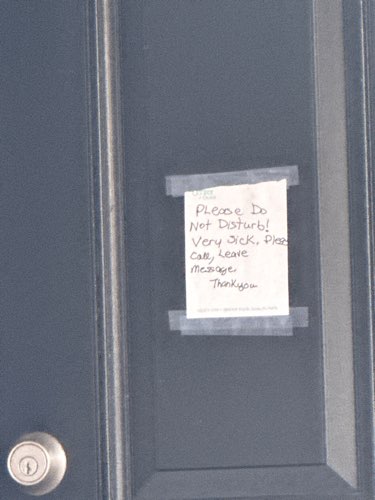 Please Do
Not Disturb!
Very Sick, Pleas
Call, Leave
Message.
Thankyou